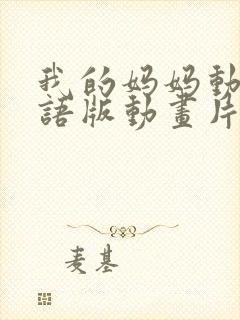 我的妈妈動
語版動畫片
麦基